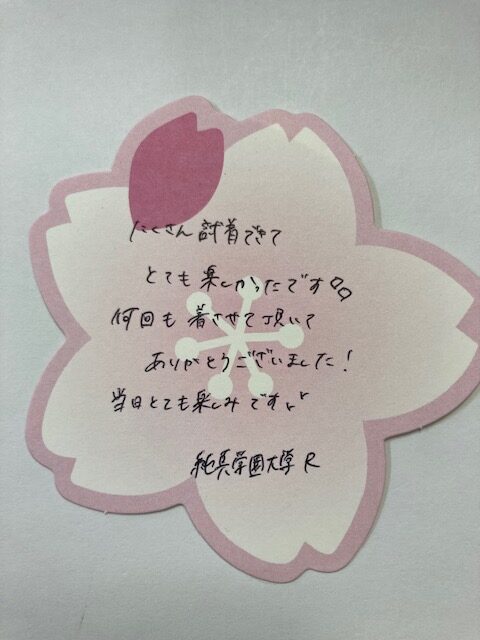 たくさん試着できて
とても楽しかったです♡♡
何回も着させて頂いて
ありがとうございました!
当日とても楽しみです
純真学園大学 R